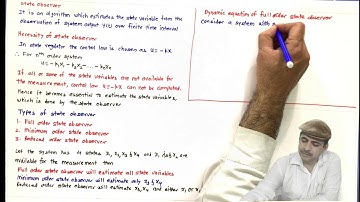 State observer
It is an algorithm which estimates the state variable from the
observation of system output y(t) over finite time interval
Necessity of state observer
In state regulator the control law is chosen as u = -kx
∴ For nth order system
u = -k₁x₁ - k₂x₂ - ... - kₙxₙ
If all or some of the state variables are not available for
the measurement, control law u = -kx can not be computed.
Hence it becomes essential to estimate the state variable x,
which is done by the state observer
Types of state observer
1. Full order state observer
2. Minimum order state observer
3. Reduced order state observer
Let the system has 4 states x₁, x₂, x₃ & x₄ and x₁ & x₂ are
available for the measurement then
Full order state observer will estimate all state variables
Minimum order state observer will estimate only x₃ & x₄
Reduced order state observer will estimate x₃, x₄ and either x₁ or x₂
Dynamic equation of full order state observer
Consider a system with